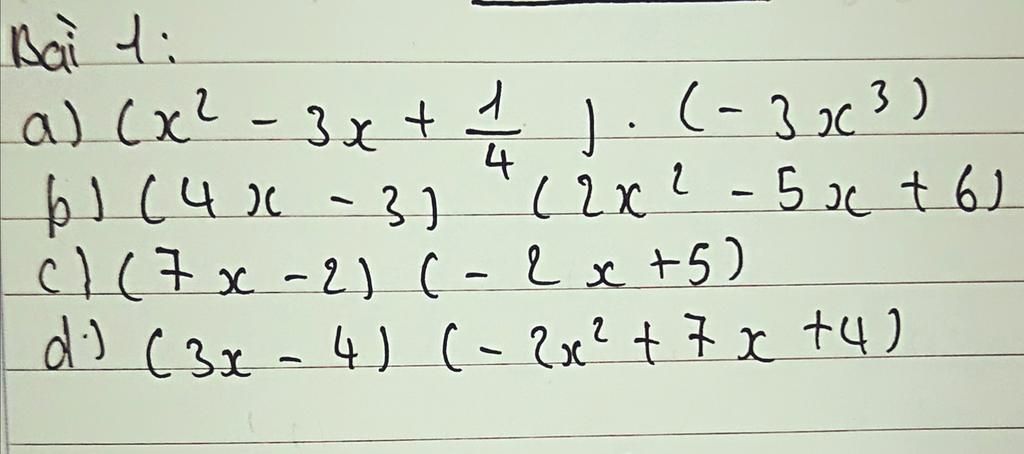 Bài 1:
a) (x² - 3x + 1/4) . (- 3x³)
b) (4x - 3) (2x² - 5x + 6)
c) (7x - 2) (- 2x + 5)
d) (3x - 4) (- 2x² + 7x + 4)